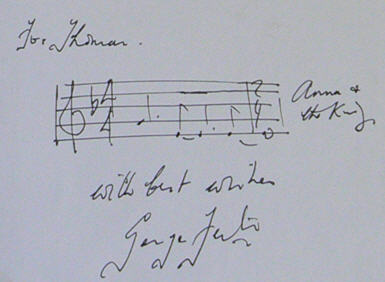 For Thomas.
4 4 2 4
Anna &
the King
with best wishes
George Fenton